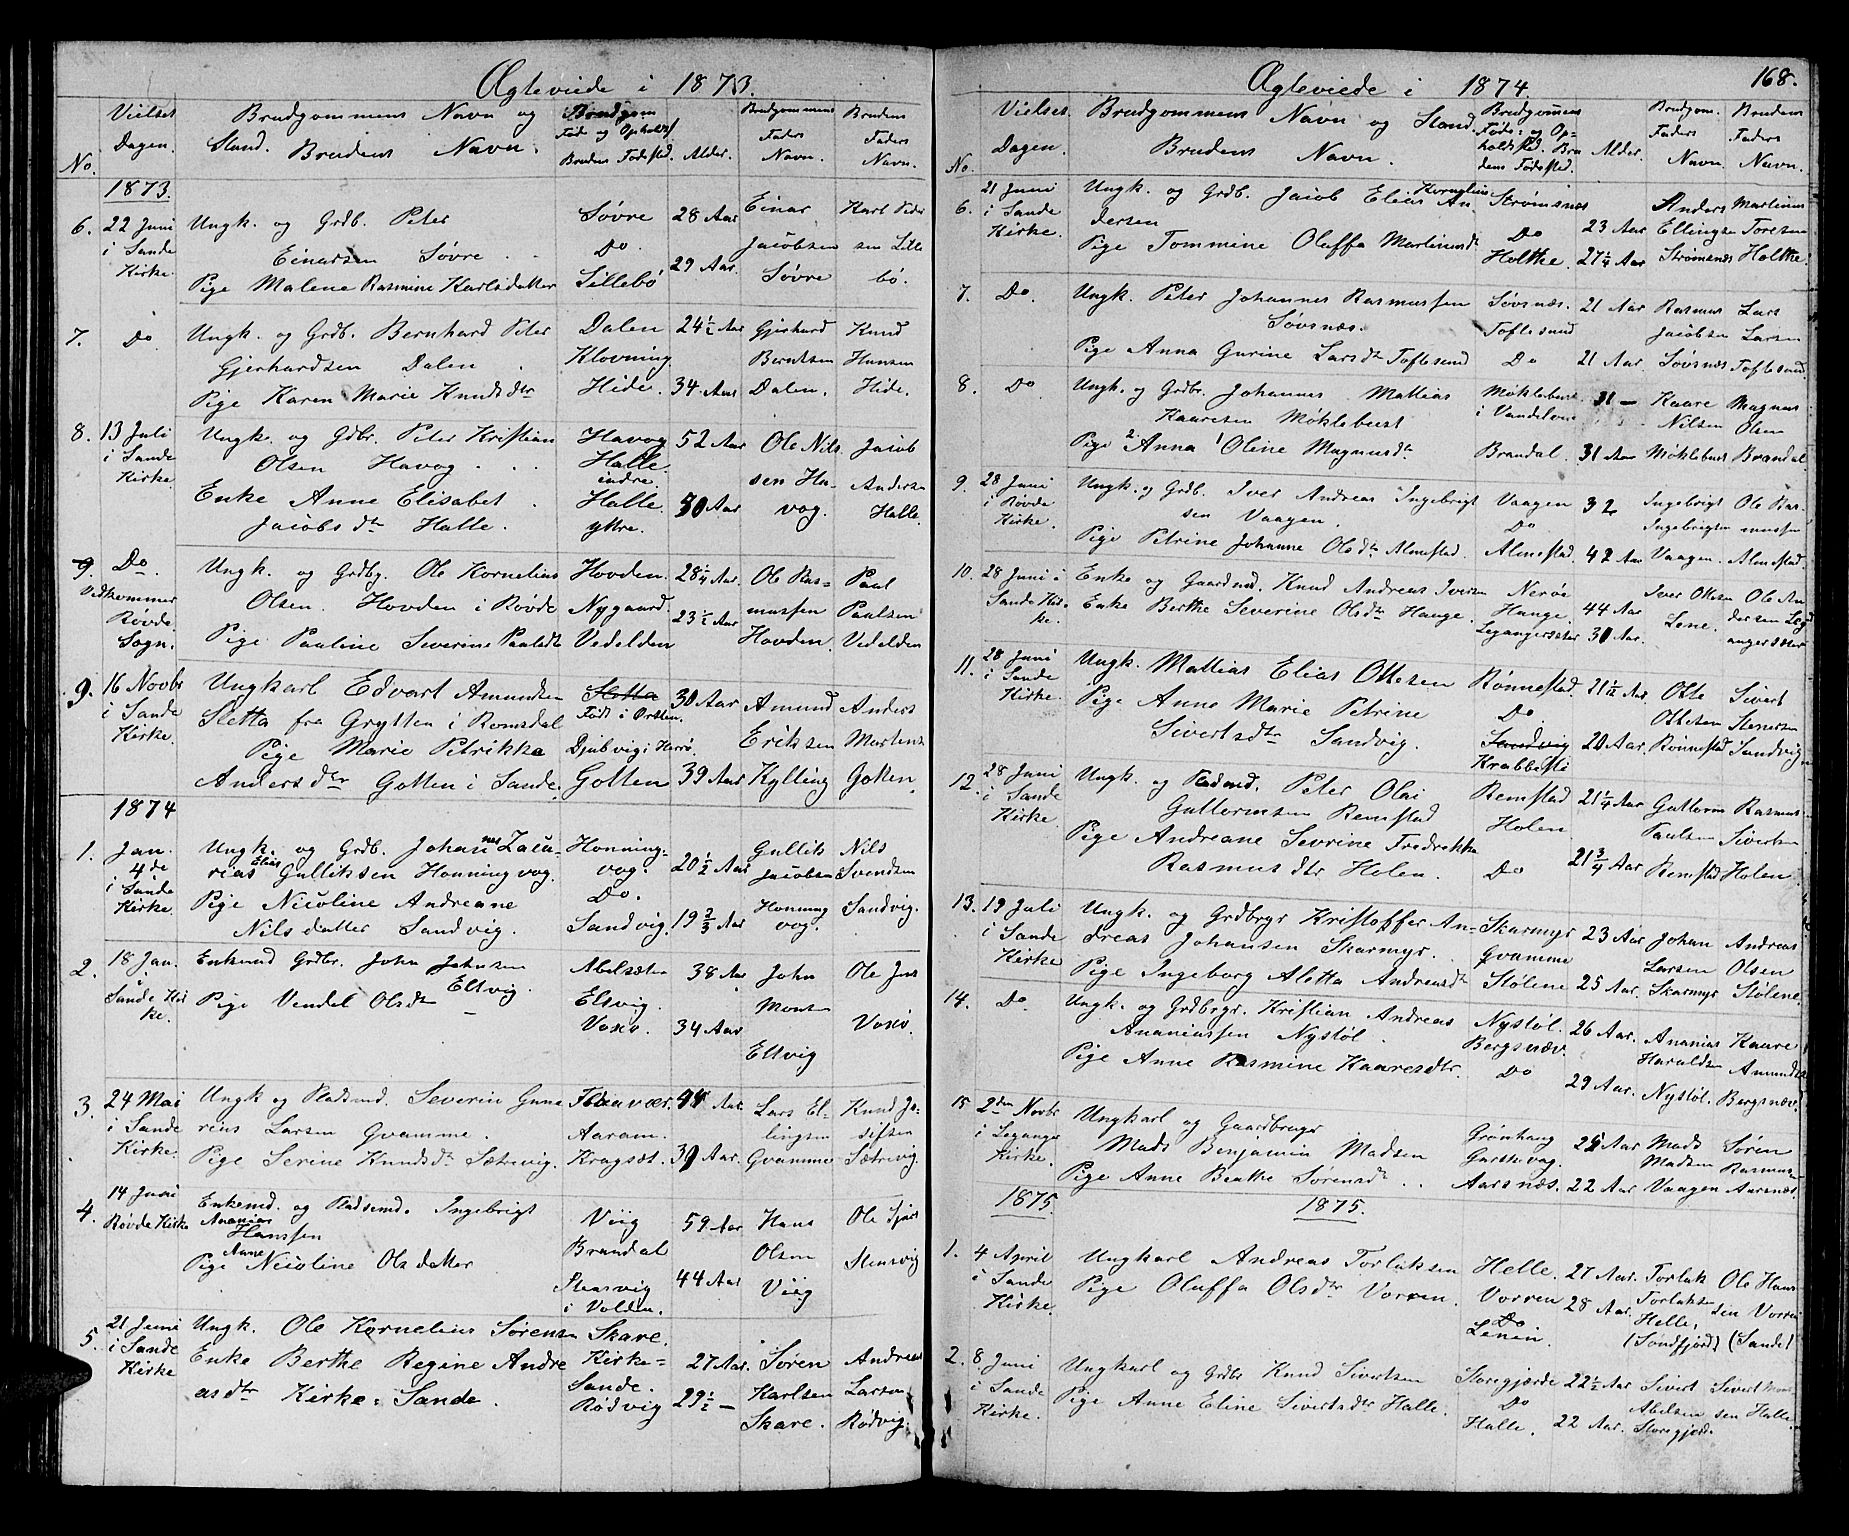 Ægteviede i 1873.
No.
Vielses Dagen.
Brudgommens Navn og Stand. Brudens Navn.
Brudgom Føde og Opholds/ Brudens Fødested.
Alder.
Brudgommens Faders Navn.
Brudens Faders Navn.
1873.
6. 22 Juni i Sande Kirke
Ungk. og Grdb. Peter
Einarsen Søvre
Pige Malene Rasmine Karlsdatter
Søvre
Do.
Lillebø
28 Aar
29 Aar
Einar
Jacobsen
Søvre
Karl Peder
sen Lille
bø.
7. Do
Ungk. og Grdb. Bernhard Peter
Gjerhardsen Dalen
Pige Karen Marie Knudsdtr
Dalen
Klovning
Hide.
24½ Aar
34 Aar
Gjerhard
Berntsen
Dalen.
Knud
Hansen
Hide.
8. 13 Juli i Sande Kirke
Ungk. og Gdbr. Peter Kristian
Olsen Havog
Enke Anne Elisabet
Jacobsdtr Halle.
Havog
Halle indre
Halle ytre.
52 Aar
50 Aar
Ole Nils
sen Ha
vog.
Jacob
Andersen
Halle.
9. Do.
Vedkommer
Røvde
Sogn.
Ungk. og Grdbg. Ole Kornelius
Olsen. Hovden i Røvde
Pige Pauline Severine Paulsdtr
Hovden.
Nygaard
Vedelden
28¼ Aar.
23½ Aar
Ole Ras=
mussen
Hovden.
Paul
Paulsen
Vedelden
9. 16 Novbr i Sande Kirke.
Ungkarl Edvart Amundsen
Sletta fra Grytten i Romsdal
Pige Marie Petrikke
Andersdtr Gotten i Sande.
Sletta
Født i Ørsten.
Djubvig i Harrø.
Gotten
30 Aar
39 Aar
Amund
Eriksen
Kylling
Anders
Martens
Gotten.
1874
1. Jan. 4de i Sande Kirke.
Ungk. og Grdb. Johannes Zacu-
rias Elias Gulliksen Honningvog.
Pige Nicoline Andreane
Nilsdatter Sandvig.
Honning-
vog.
Do.
Sandvig.
20½ Aar
19⅔ Aar
Gullik
Jacobsen
Honning
vog.
Nils
Svendsen
Sandvig.
2. 18 Jan. Sande Kir ke.
Enkemd Grdbr. John Johnsen
Eltvig.
Pige Vendel Olsdtr
Abelsæter
Eltvig.
Voxø.
38 Aar
34 Aar
John
Monsen
Eltvig
Ole Jens
Voxø.
3. 24 Mai i Sande Kirke.
Ungk og Pladsmd. Severin Guna
rius Larsen Gvamme.
Pige Serine Knudsdtr Sætrevig.
Flaavær.
Aaram.
Kragsæt.
44 Aar.
39 Aar.
Lars El-
lingsen
Gvamme
Knud Jo-
sifsen
Sætrevig.
4. 14 Juni Røvde Kirke
Enkemd. og Pladsemd. Ingebrigt
Ananias
Hansen
Anne
Pige Nicoline Olsdatter
Viig
Brandal
Steasvig
i Volden.
59 Aar
44 Aar
Hans
Olsen
Viig
Ole
Stensvig
5. 21 Juni i Sande Kirke
Ungk. Ole Kornelius Sørensen
Enke Berthe Regine Andre
asdtr Kirke=Sande.
Skare.
Kirke=
Sande.
Rødvig
27 Aar.
29½ —
Søren
Karlsen
Skare.
Andreas
Larsen
Rødvig.
Ægteviede i 1874.
168.
No.
Vielses Dagen.
Brudgommens Navn og Stand
Brudens Navn.
Brudgomens
Føde: og Op=
holdsted. Bru
dens Fødested.
Alder.
Brudgom. Faders Navn.
Brudens Faders Navn.
6. 21 Juni i Sande Kirke.
Ungk. og Grdb. Jacob Elias Kornelius An
dersen
Pige Tommine Oluffa Martinusdt
Strømsnæs
Do
Holtke.
23 Aar
27¼ Aar
Anders
Ellingsen
Strømsnæs
Martinus
Toresen
Holtke.
7. Do.
Ungk. Peter Johannes Rasmussen
Søvsnæs.
Pige Anna Gurine Larsdtr Toftesund
Søvsnæs.
Toftesund
Do
21 Aar
21 Aar.
Rasmus
Jacobsen
Søvsnæs
Lars
Larsen
Toftesund
8. Do
Ungk. og Grdbr. Johannes Mattias
Kaaresen Møklebust
Pige 2 Anna 1 Oline Magnusdtr
Møklebust
i Vandelven
Brandal.
31 —
31 Aar
Kaare
Nilsen
Møklebust
Magnus
Olsen
Brandal
9. 28 Juni i Røvde Kirke.
Ungk. og Grdb. Iver Andreas Ingebrigt
sen Vaagen.
Pige Petrine Johanne Olsdtr Almestad.
Vaagen
Do
Almestad.
32
42 Aar
Ingebrigt
Ingebrigtsen
Vaagen.
Ole Ras-
mussen
Almestad.
10. 28 Juni i Sande Kir- ke.
Enke og Gaardmd. Knud Andreas Iversen
Enke Berthe Severine Olsdtr Hauge.
Nerøe
Hauge.
Legangersæter
44 Aar
30 Aar.
Iver Ottesen
Lene.
Ole An
dersen Leg
angersæter
11. 28 Juni i Sande Kirke.
Ungk. Mattias Elias Ottesen
Pige Anne Marie Petrine
Sivertsdtr Sandvig.
Rønnestad.
Do.
Sandvig
Krabbesti
Aar
20 Aar.
Otte
Ottesen
Rønnestad
Sivert
Stenersen
Sandvig
12. 28 Juni i Sande Kirke.
Ungk. og Pladsmd. Peter Olai
Guttormsen Remstad
Pige Andreane Severine Fredrikke
Rasmusdtr Holen.
Remstad
Holen
Do
21¼ Aar
21¾ Aar.
Guttorm
Paulsen
Remstad
Rasmus
Sivertsen
Holen.
13. 19 Juli i Sande Kirke
Ungk. og Grdbrgr Kristoffer An-
dreas Johansen Skarmyr.
Pige Ingeborg Aletta Andreasdtr
Skarmyr
Gvamme
Stølene
23 Aar
25 Aar.
Johan
Larsen
Skarmyr
Andreas
Olsen
Stølene.
14. Do.
Ungk. og Grdbrgr. Kristian Andreas
Ananiassen Nystøl.
Pige Anne Rasmine Kaaresdtr.
Nystøl.
Bergsnæv.
Do
26 Aar.
29 Aar.
Ananias
Haraldsen
Nystøl.
Kaare
Amundsen
Bergsnæv.
15 2den Novbr i Leganger Kirke.
Ungkarl og Gaardbruger
Mads Benjamin Madsen
Pige Anne Beathe Sørensdtr
Grønhaug
Gurskevaag.
Aarsnæs.
25 Aar
22 Aar
Mads
Madsen
Vaagen
Søren
Rasmus-
Aarsnæs.
1875. 1875.
1. 4 April i Sande Kirke.
Ungkarl Andreas Torluksen
Pige Oluffa Olsdtr Vorren.
Helle.
Vorren
Do
27 Aar.
28 Aar.
Torluk
Torluksen
Helle.
(Søndfjord)
Ole Hans
sen Vorren
(Sande)
2. 8 Juni i Sande Kirke.
Ungkarl og Grdbr Knud Sivertsen
Pige Anne Eline Sivertsdtr Halle.
Storegjærde
Do
Halle.
22½ Aar
22 Aar.
Sivert
Abelsen
Storegjærde.
Sivert
sen Halle.